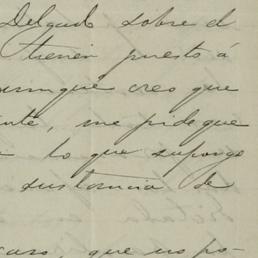 Delgado sobre el
tienen puesto á
aunque creo que
me pide que
lo que supongo
sustancia de
que no po-